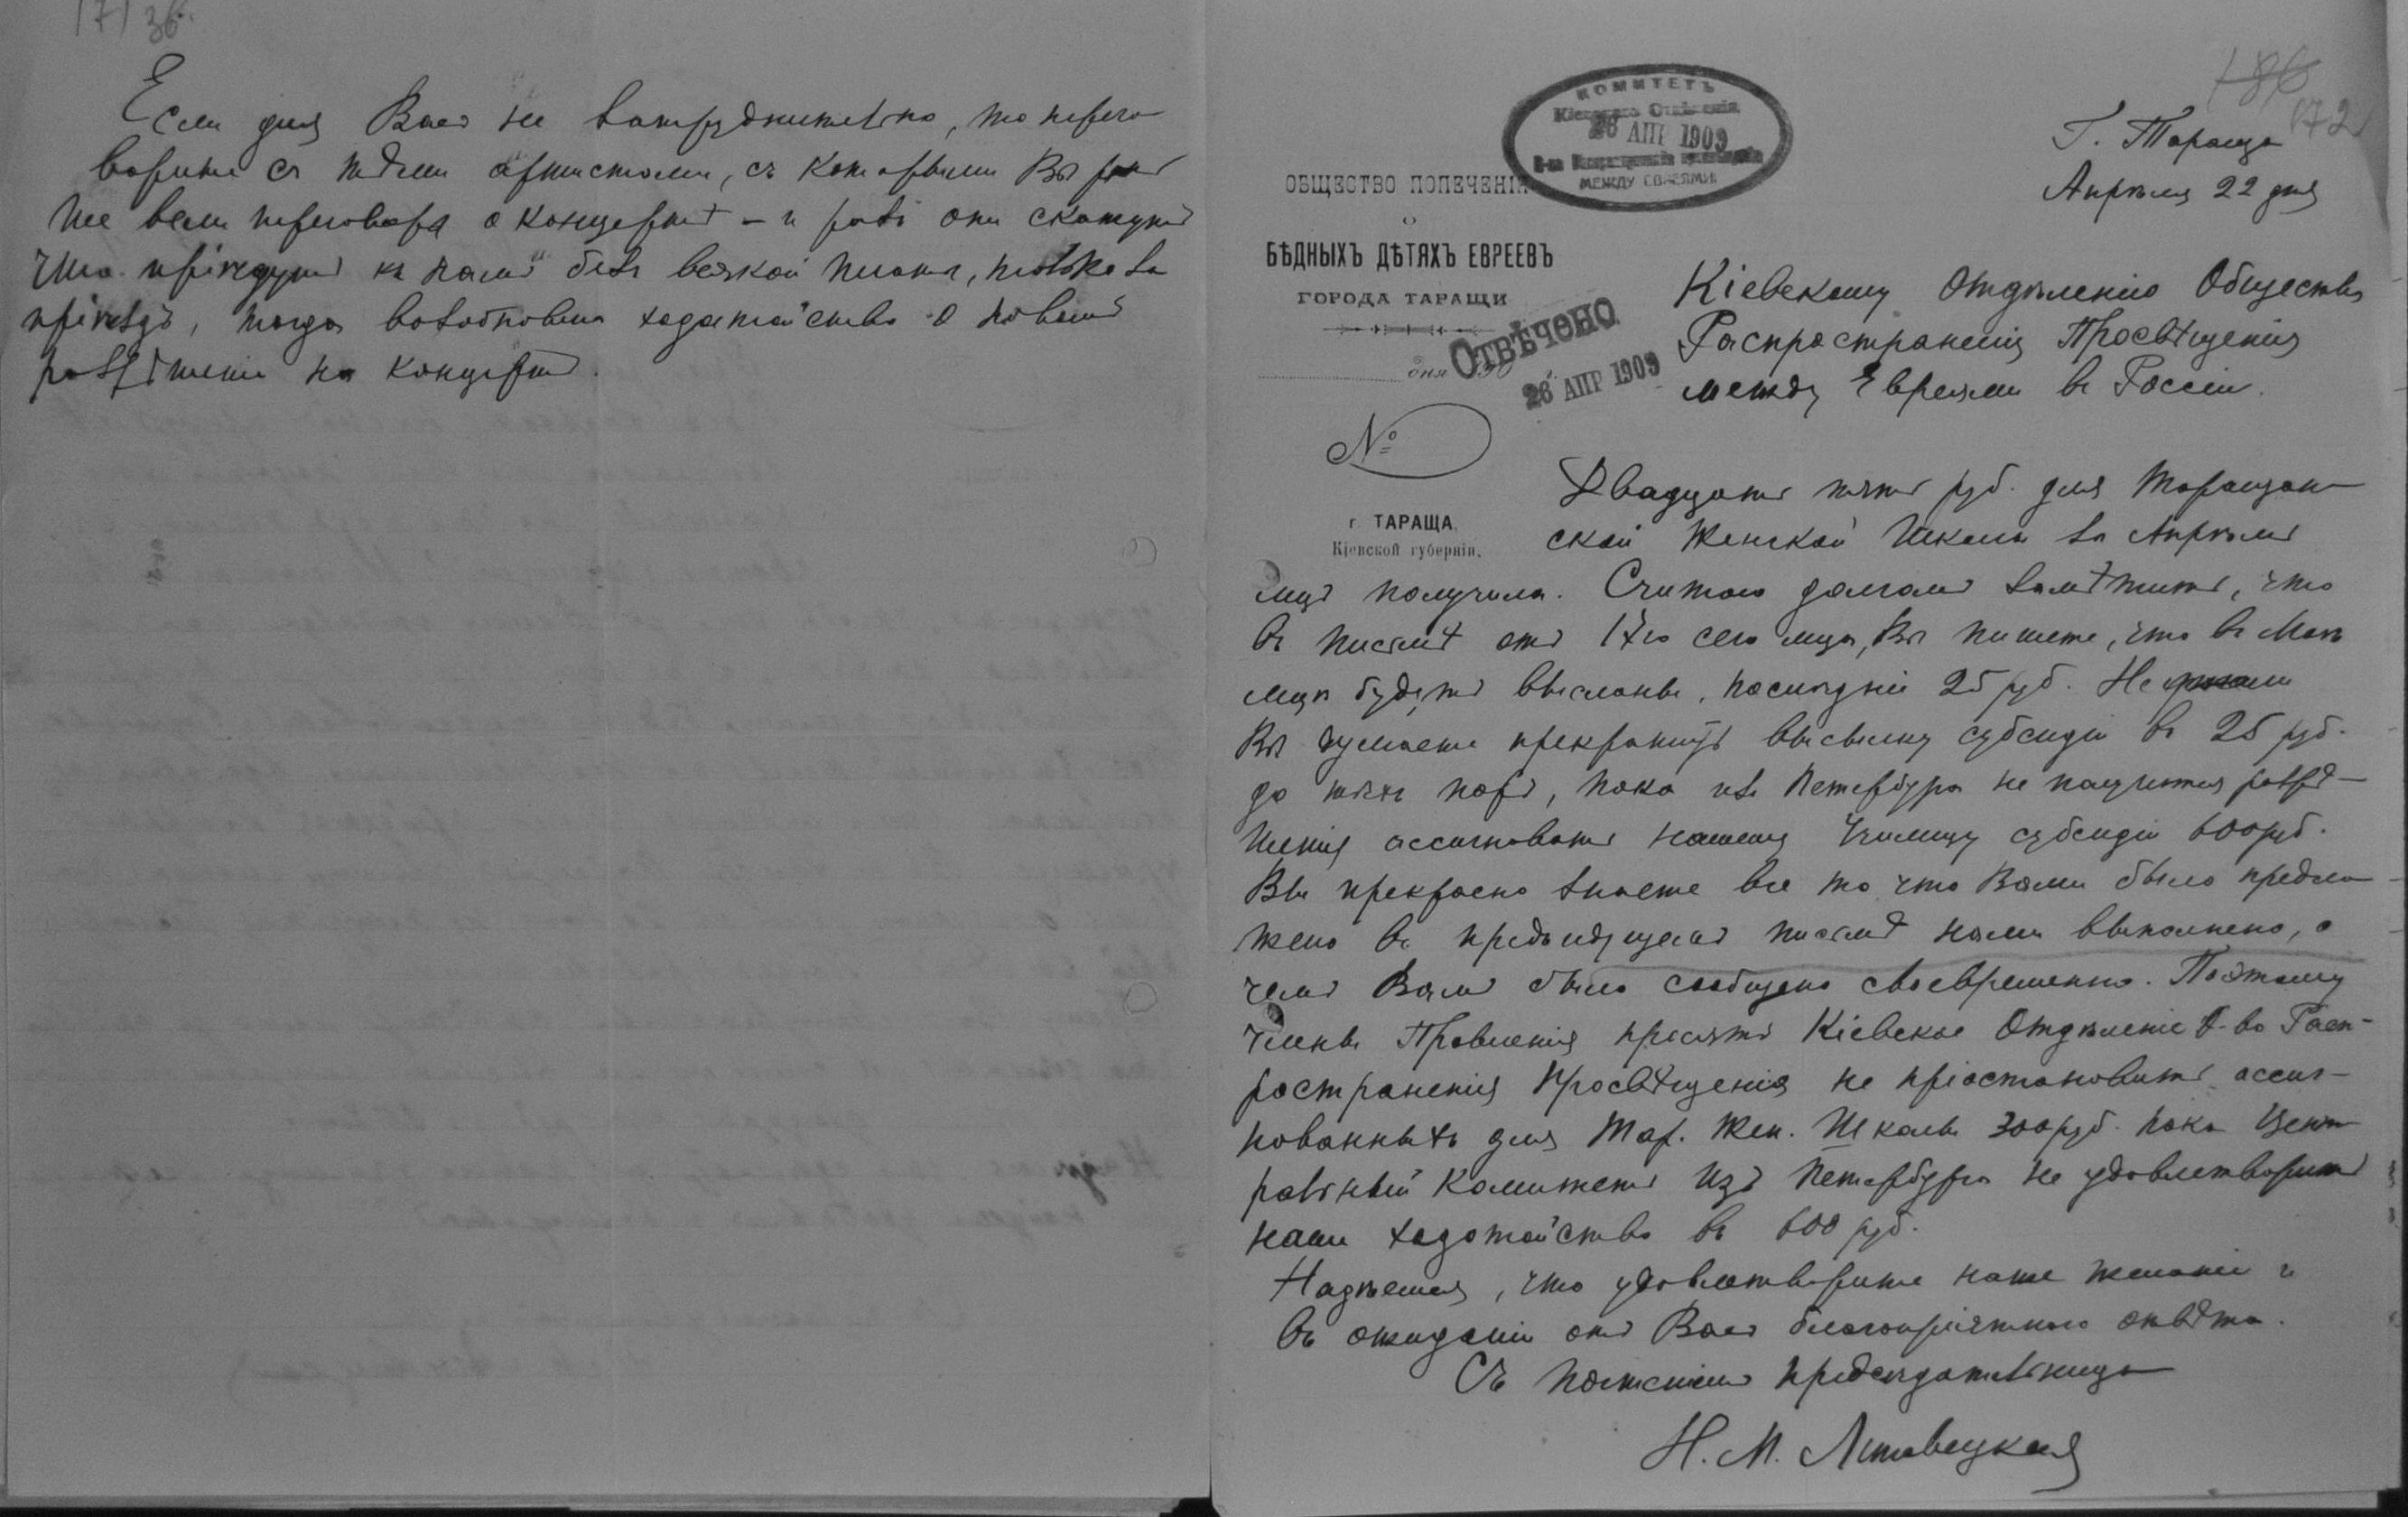 171 об.
Если для Васъ не затруднительно, то перего-
ворите съ тѣми артистами, съ которыми Вы рань
ше вели переговоры о концертѣ – и разъ они скажутъ
что пріѣдутъ къ намъ безъ всякой платы, только за
пріѣздъ, тогда возобновимъ ходатайство о новомъ
разрѣшеніи на концертъ.
186
172
Г. Тараща
Апрѣля 22 дня
КОМИТЕТЪ
Кіевскаго Отдѣленія
26 АПР 1909
МЕЖДУ ЕВРЕЯМИ
ОБЩЕСТВО ПОПЕЧЕНІЯ
О
БѢДНЫХЪ ДѢТЯХЪ ЕВРЕЕВЪ
ГОРОДА ТАРАЩИ
дня 190 г.
ОТВѢЧЕНО
26 АПР 1909
№
г. ТАРАЩА,
Кіевской губерніи.
Кіевскому Отдѣленію Общества
Распространенія Просвѣщенія
между Евреями въ Россіи.
Двадцать пять руб. для Таращан-
ской Женской Школы за Апрѣль
мцъ получила. Считаю долгомъ замѣтить, что
въ письмѣ отъ 17го сего мца, Вы пишете, что въ Маѣ
мцѣ будутъ высланы послѣдніе 25 руб. Не
Вы думаете прекратить высылку субсидіи въ 25 руб.
до тѣхъ поръ, пока изъ Петербурга не получится разрѣ-
шенія ассигновать нашему Училищу субсидіи 600 руб.
Вы прекрасно знаете все то что Вами было предло-
жено въ предыдущемъ письмѣ нами выполнено, о
чемъ Вамъ было сообщено своевременно. Поэтому
члены Правленія просятъ Кіевское Отдѣленіе О-ва Расп-
ространенія Просвѣщенія не пріостановить ассиг-
нованныхъ для Тар. Жен. Школы 300 руб. пока Цент
ральный Комитетъ изъ Петербурга не удовлетворитъ
наше ходотайство въ 600 руб.
Надѣемся, что удовлетворите наше желаніе и
въ ожиданіи отъ Васъ благопріятнаго отвѣта.
Съ почтеніемъ предсѣдательница
Н. М. Литовецкая